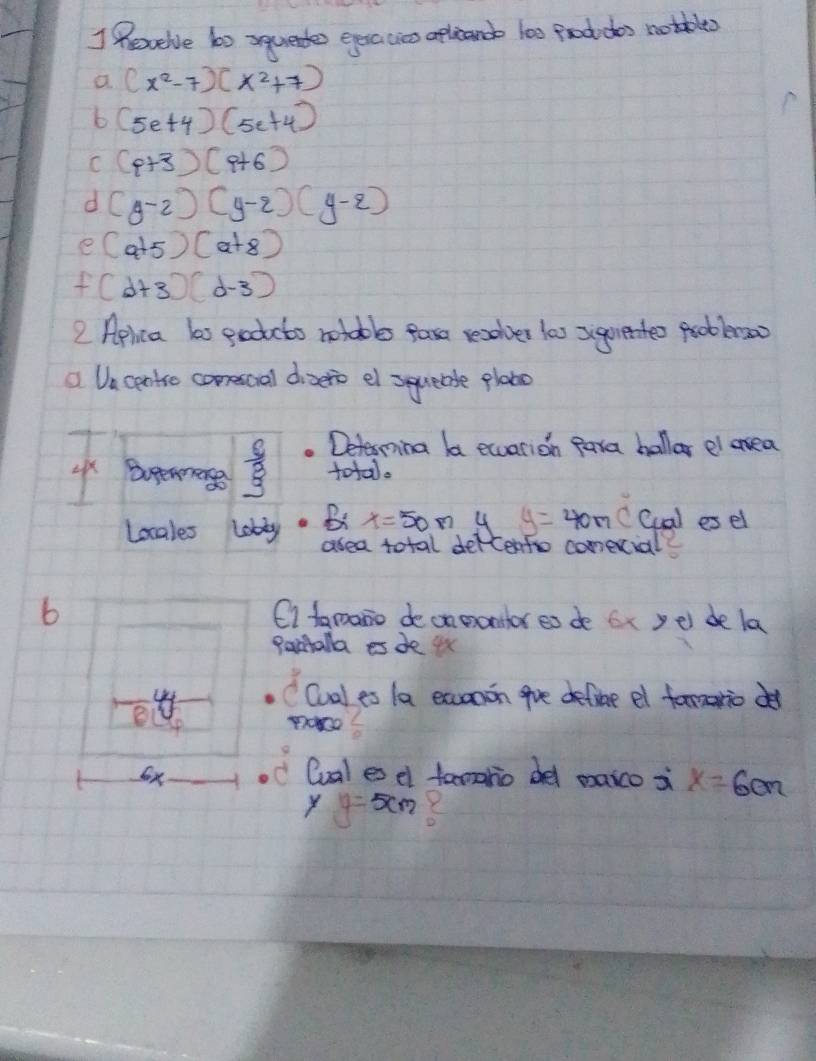 1 Resuelve los siguientes ejercicios aplicando los productos notables
a. (x²-7)(x²+7)
b (5e+4)(5e+4)
c (p+3)(p+6)
d. (y-2)(y-2)(y-2)
e (a+5)(a+8)
f (d+3)(d-3)
2 Aplica los productos notables para resolver los siguientes problemas
a Un centro comercial diseño el siguiente plano
4x
• Determina la ecuación para hallar el area
total.
Locales Lobby
• Si x=50m y y=40m ¿Cual es el
area total del centro comercial?
b
El tamaño de un monitor es de 6x y el de la
pantalla es de 4x
4y
• ¿Cual es la ecuación que define el tamaño del
marco?
6x
• ¿Cual es el tamaño del marco si x=6cm
y y=5cm?